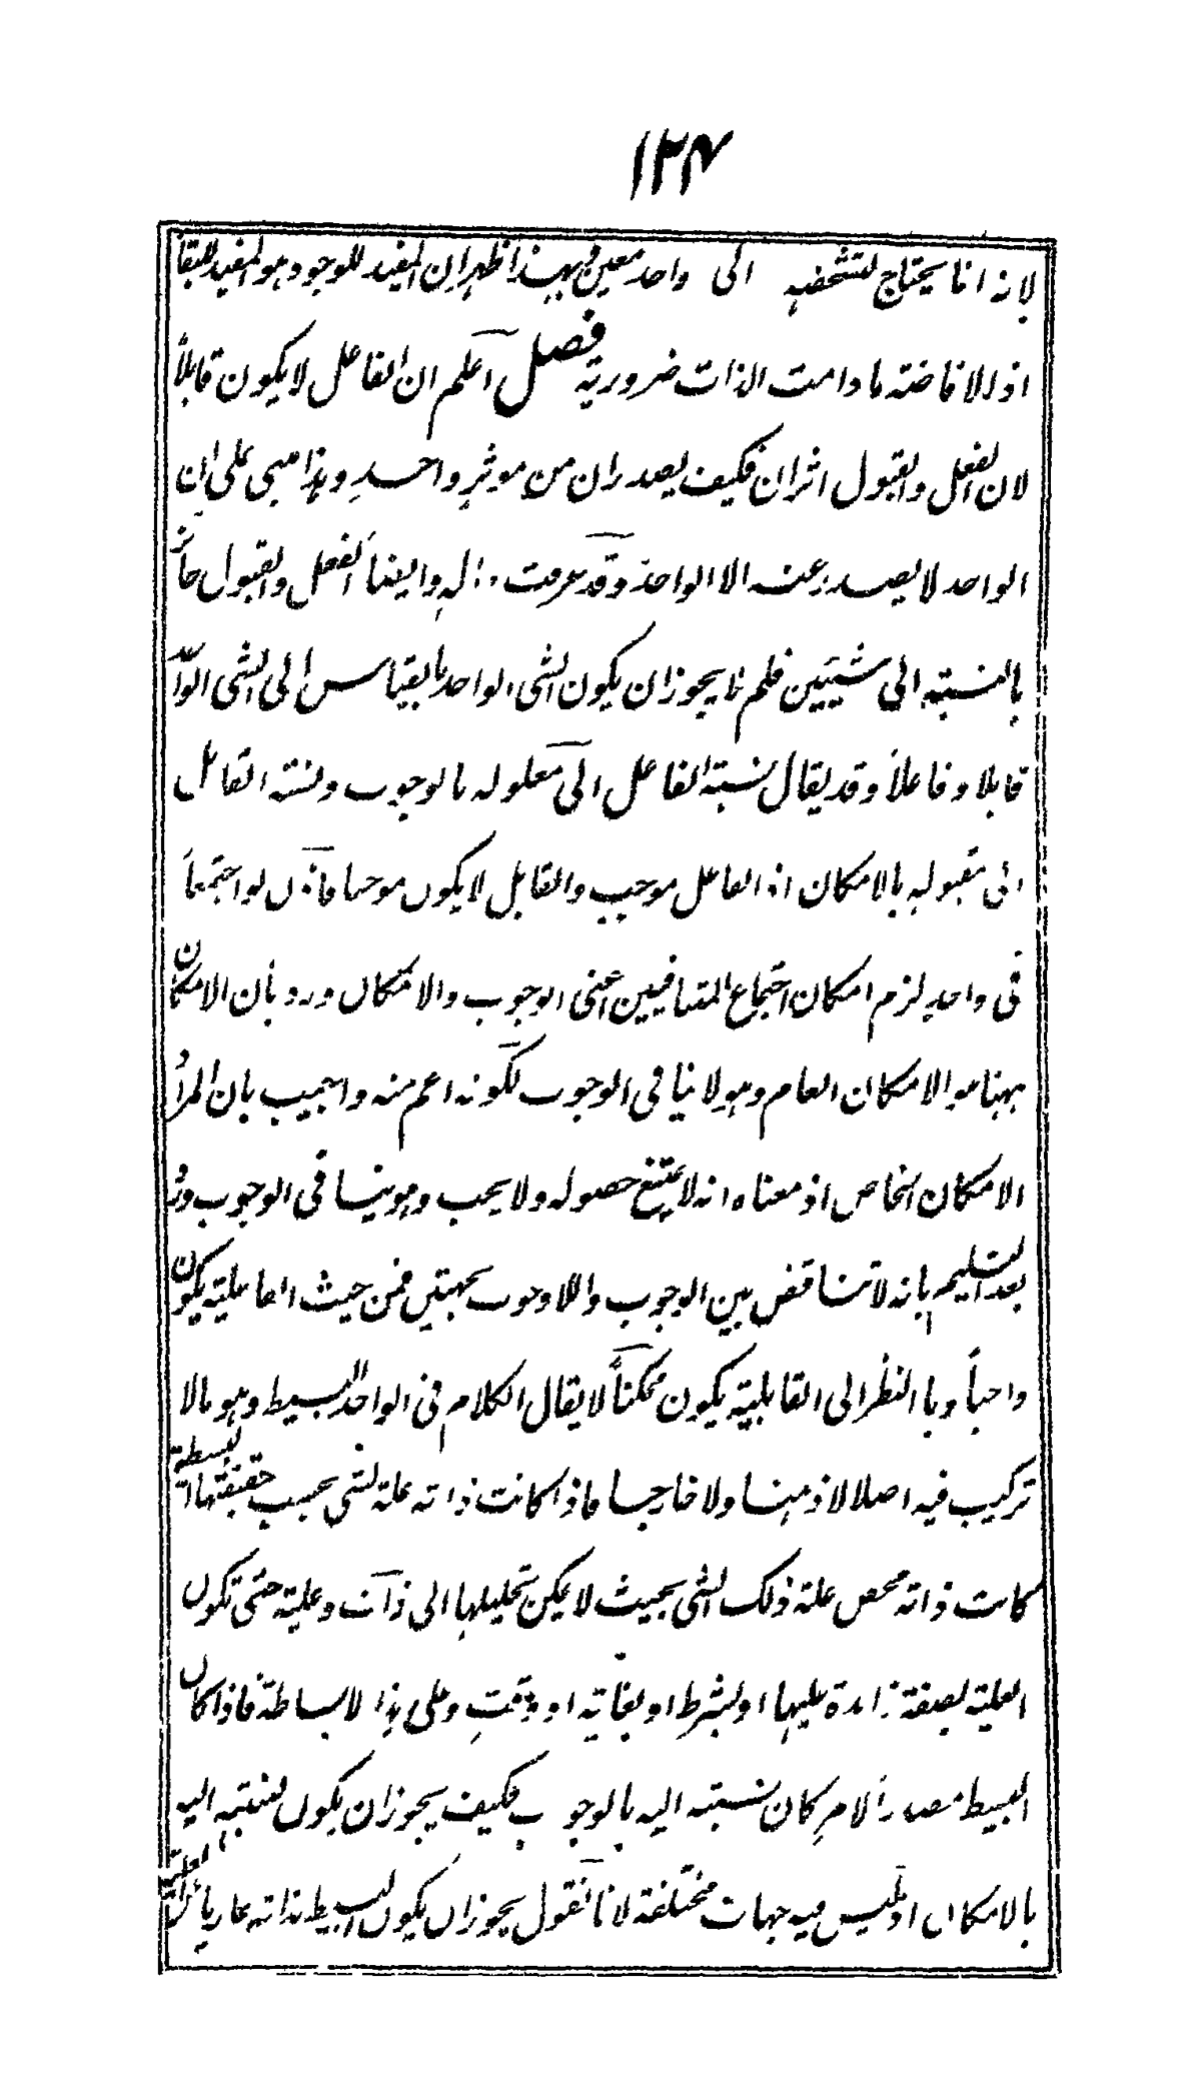 ١٢٤
لانه انا يحتاج لتشخصه الى واحد معين فبهذا ظهر ان المفيد للوجود هو المفيد للبقا
اذ الافاضته ما دامت الذات ضرورية فصل اعلم ان الفاعل لا يكون قابلاً
لان الفعل والقبول اثران فكيف يصدران من موثر واحد وهذا مبنى على ان
الواحد لا يصدر عنه الا الواحد وقد عرفت وايضاً الفعل والقبول حائز
بالنسبته الى شيئين فلم نا يجوز ان يكون الشى الواحد بالقياس الى الشى الواحد
قابلا وفاعلاً وقد يقال نسبة الفاعل الى معلوله بالوجوب ونسبة القابل
الى مقبوله بالامكان اذ الفاعل موجب والقابل لا يكون موجبا فاذن لو اجتمعاً
فى واحد لزم امكان اجتماع المتنافيين اعنى الوجوب والامكان ورد بأن الامكان
ههنا هو الامكان العام وهو لا ينافى الوجوب لكونه اعم منه واجيب بان المراد
الامكان الخاص اذ معناه انه لا يمتنع حصوله ولا يجب وهو ينافى الوجوب ورد
بعد التسليم بانه لا تناقض بين الوجوب واللاوجوب بجهتين فمن حيث الفاعلية يكون
واجباً وبا النظر الى القابلية يكون ممكناً لا يقال الكلام فى الواحد البسيط وهو مالا
تركيب فيه اصلا لا ذهنا ولا خارجا فاذا كانت ذاته علة لشى بحسب حقيقتها البسيطة
كانت ذاته محص علة ذلك الشى بحيث لا يمكن تحليلها الى ذات وعلية حتى تكون
العلية بصفة زايدة عليها او بشرط او بغاية او وقت وعلى هذا لا بساطة فاذا كان
البسيط مصدراً لامر كان نسبته اليه بالوجوب فكيف يجوز ان يكون نسبته اليه
بالامكان اذ ليس فيه جهات مختلفة لانا نقول يجوز ان يكون البسيط بذاته عاريا